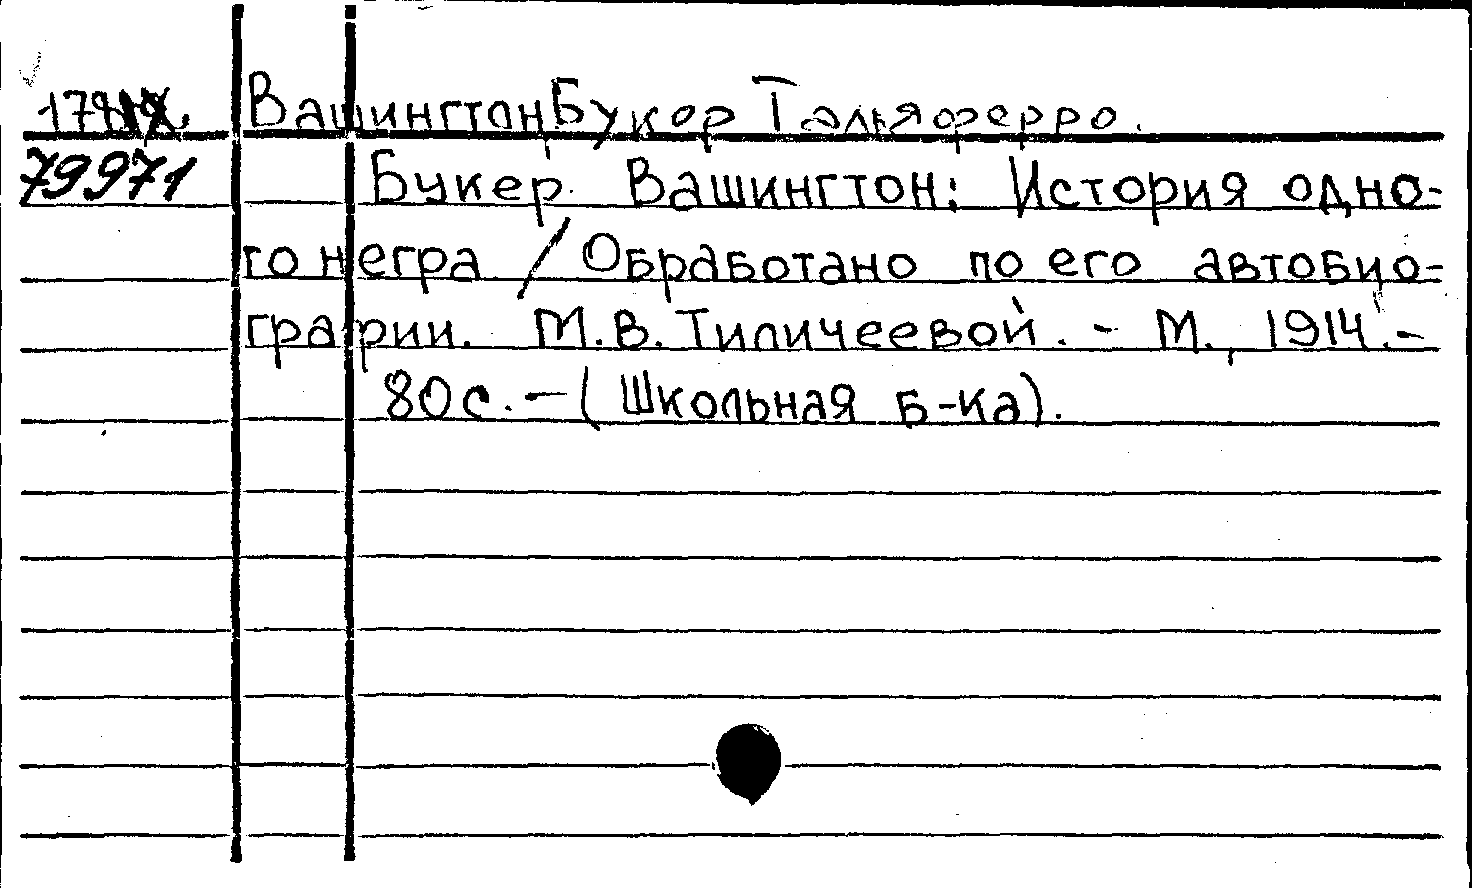 Вашингтон, Букер Тальяферро.
79971 Букер Вашингтон: История одно-
го негра / Обработано по его автобио-
графии. М.В. Тиличеевой. - М., 1914. -
80 с. - (Школьная б-ка).